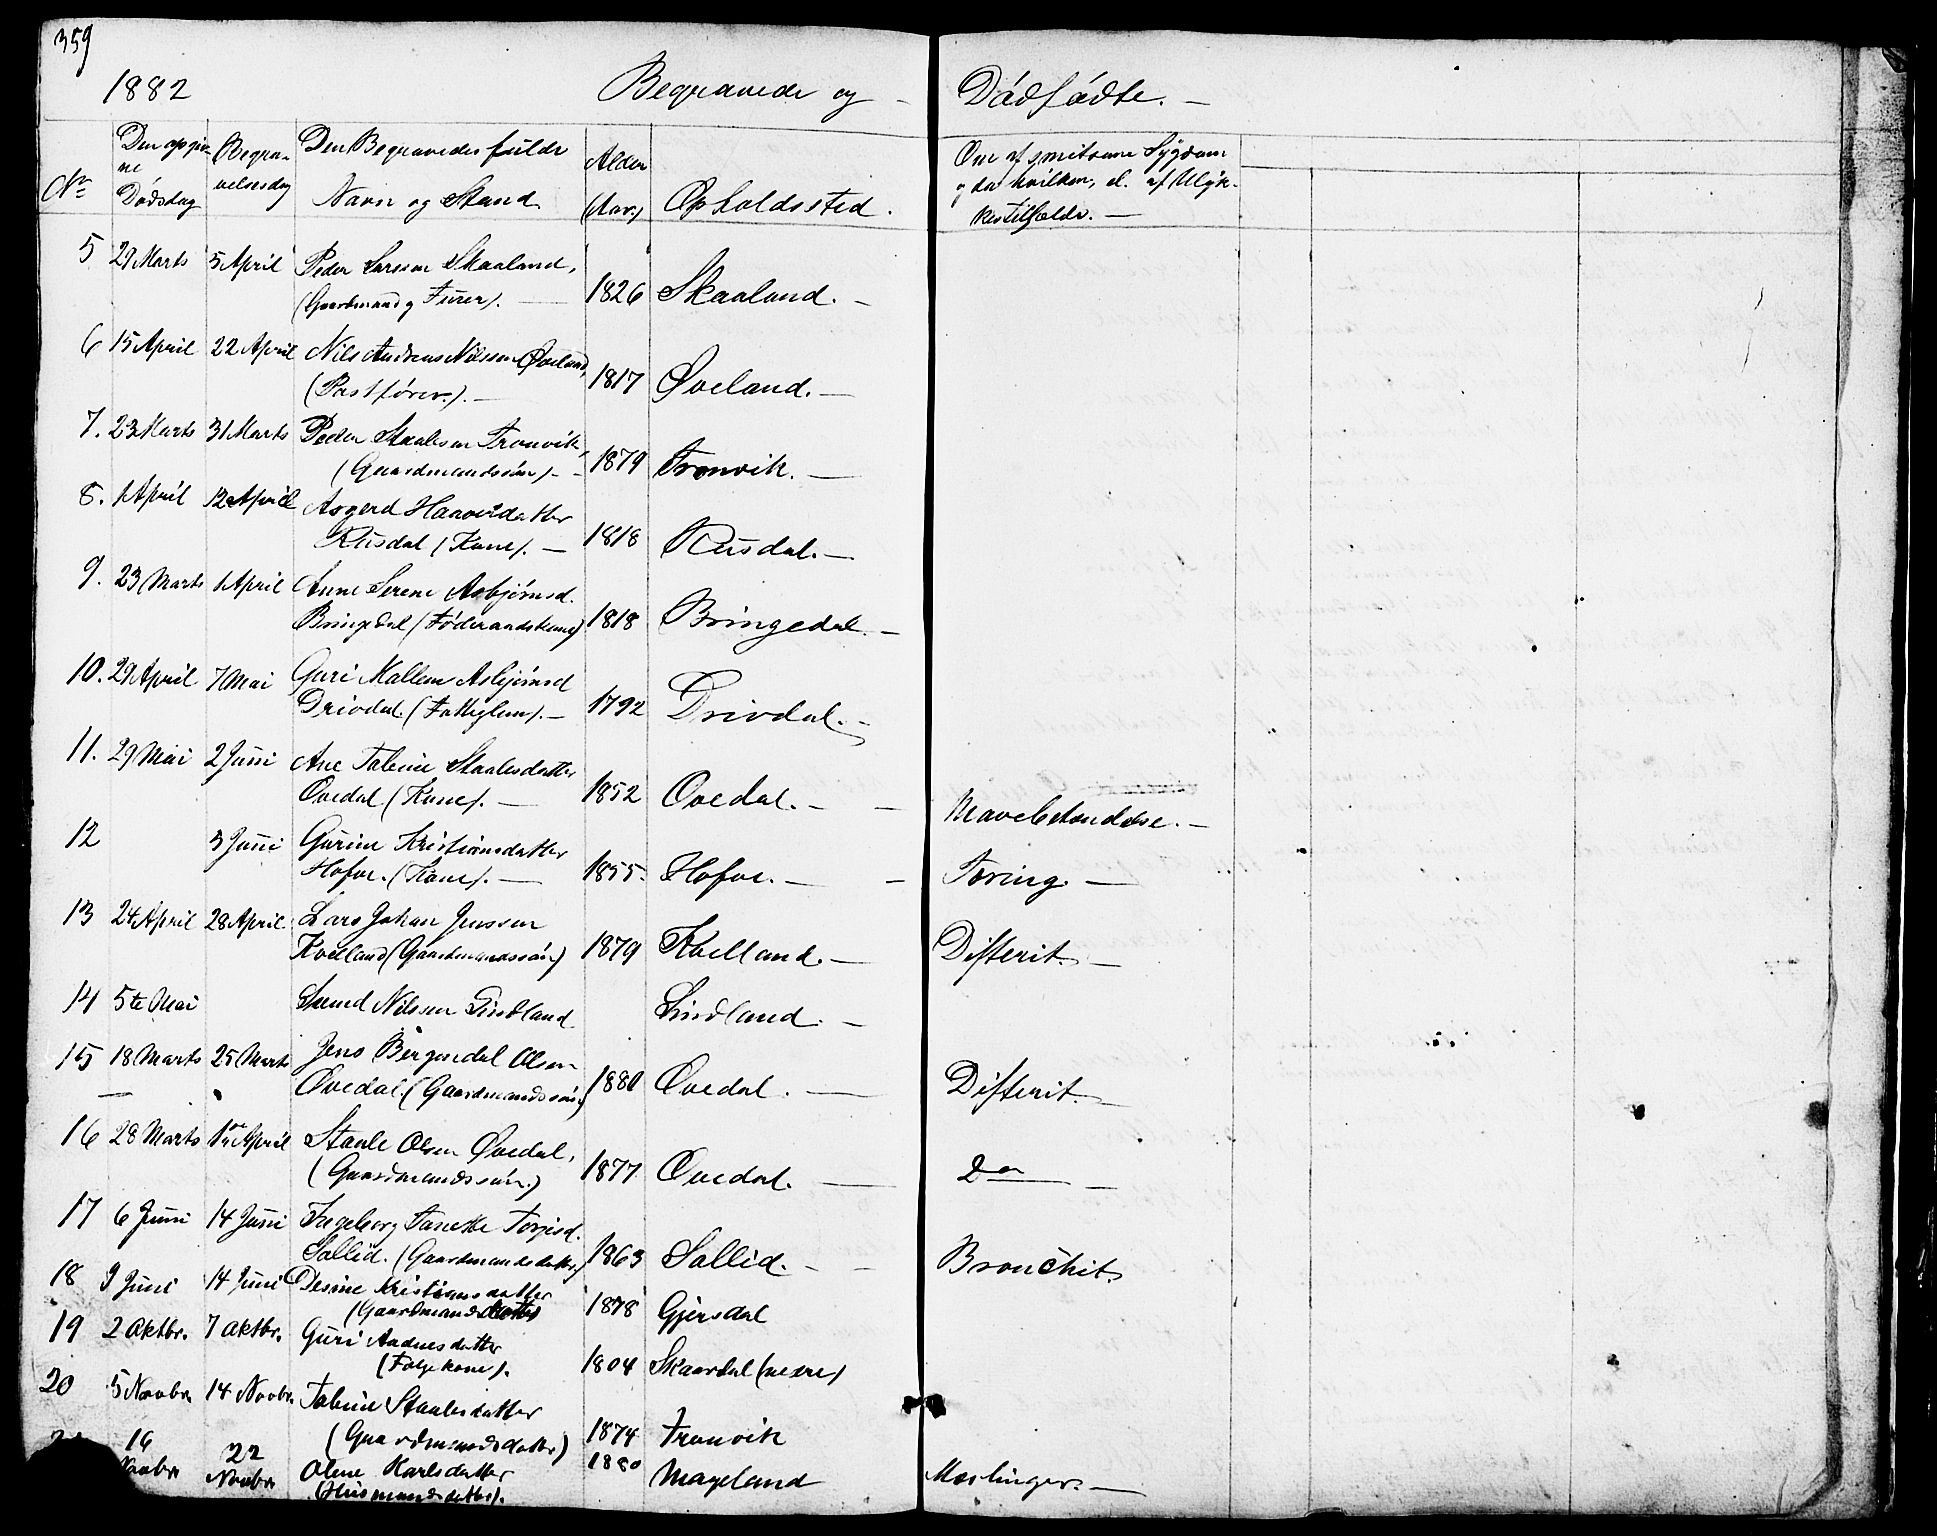 359
1882 Begravede og — Dødfødte. —
No Den opgiv-ne Dødsdag Begra-velsesdag Den Begravedes fulde Navn og Stand. Alder (Aar.) Opholdssted. Om af smitsom Sygdom og da hvilken, el. af Ulyk-kestilfælde. —
5 29 Marts 5 April Peder Larssen Skaaland,
(Gaardmand og Furer). — 1826 Skaaland. —
6 15 April 22 April Nils Andreas Nilssen Øveland,
(Postfører.). — 1817 Øveland. —
7. 23 Marts 31 Marts Peder Staalesen Tronvik,
(Gaardmandssøn). - 1879 Tronvik. —
8. 1 April 12 April Asgerd Haaversdatter
Rusdal (Kone). — 1818 Rusdal. —
9. 23 Marts 1 April Anne Serene Asbjörnsd.
Bringedal (Föderaadskone) 1818 Bringedal. —
10. 29 April 7 Mai Guri Mallene Asbjörnsd
Drivdal. (Fattiglem). — 1792 Drivdal. —
11. 29 Mai 2 Juni Ane Taline Staalesdatter
Ovedal (Kone). — 1852 Ovedal. — — Mavebetændelse. —
12 3 Juni Gurine Kristiansdatter
Hofve. (Kone). — 1855. Hofve. — — Tæring. —
13 24 April 28 April. Lars Johan Jenssen
Kvelland (Gaardmandssøn) 1879 Kvelland. — Difterit. —
14 5te Mai Svend Nilssen Lindland Lindland. —
15 18 Marts 25 Marts Jens Bergendal Olsen
Øvedal. (Gaardmandssøn) 1880 Øvedal. — Difterit. —
16 28 Marts 1ste April Staale Olsen Øvedal,
(Gaardmandssøn.) 1877 Øvedal. — Do —
17 6 Juni 14 Juni Ingeborg Tanette Torjisd.
Sallid. (Gaardmandsdatter) 1863 Sallid. — — Bronchit.
18 9 Juni 14 Juni Desine Kristiansdatter
(Gaardmandsdatter) 1878 Gjersdal
19 2 Oktbr. 7 Oktbr. Guri Aadnesdatter
(Følgekone). 1804 Skaardal (nedre)
20 5 Novbr. 14 Novbr. Taline Staalesdatter
(Gaardmandsdatter) 1874 Tronvik
16 Novbr 22 Novbr Olene Karlsdatter
(Husmandsdatter). 1880 Mageland Mæslinger. —